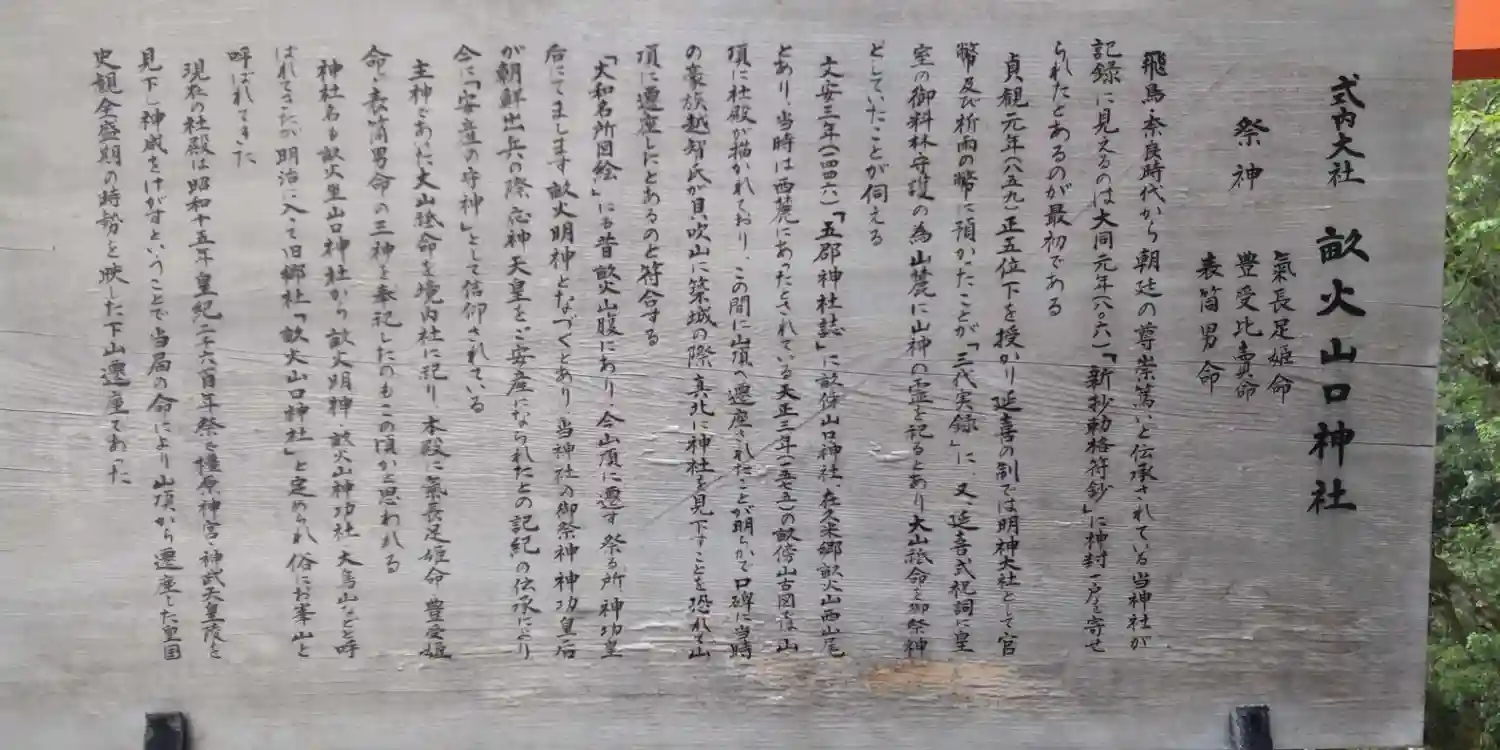 式内大社 畝火山口神社
祭神
氣長足姫命
豊受比賣命
表筒男命
飛鳥・奈良時代から朝廷の尊崇篤いと伝承されている当神社が
記録に見えるのは大同元年(八〇六)「新抄勅格符鈔」に神封一戸を寄せ
られたとあるのが最初である
貞観元年(八五九)正五位下を授かり延喜の制では明神大社として官
幣及び祈雨の幣に預かたことが「三代実録」に、又、延喜式祝詞に皇
室の御料林守護の為山麓に山神の霊を祀るとあり大山祇命を御祭神
としていたことが伺える
文安三年(一四四六)「五郡神社誌」に畝傍山口神社、在久米郷畝火山西山尾
とあり、当時は西麓にあったとされている天正三年(一五七五)の畝傍山古図では山
頂に社殿が描かれており、この間に山頂へ遷座されたことが明らかで口碑に当時
の豪族越智氏が貝吹山に築城の際、真北に神社を見下すことを恐れて山
頂に遷座したとあるのと符合する
「大和名所図絵」にも昔畝火山腹にあり、今山頂に遷す 祭る所 神功皇
后にてまします 畝火明神となづくとあり 当神社の御祭神 神功皇后
が朝鮮出兵の際、応神天皇をご安産になられたとの記紀の伝承により
今に「安産の守神」として信仰されている
主神であった大山祇命を境内社に祀り、本殿に氣長足姫命・豊受姫
命・表筒男命の三神を奉祀したのもこの頃かと思われる
神社名も畝火里山口神社から 畝火明神、畝火山神功社 大鳥山などと呼
ばれてきたが明治に入て旧郷社「畝火山口神社」と定められ俗にお峯山と
呼ばれてきた
現在の社殿は昭和十五年皇紀二千六百年祭で橿原神宮・神武天皇陵を
見下し神威をけがすということで当局の命により山頂から遷座した皇国
史観全盛期の時勢を映した下山遷座であった